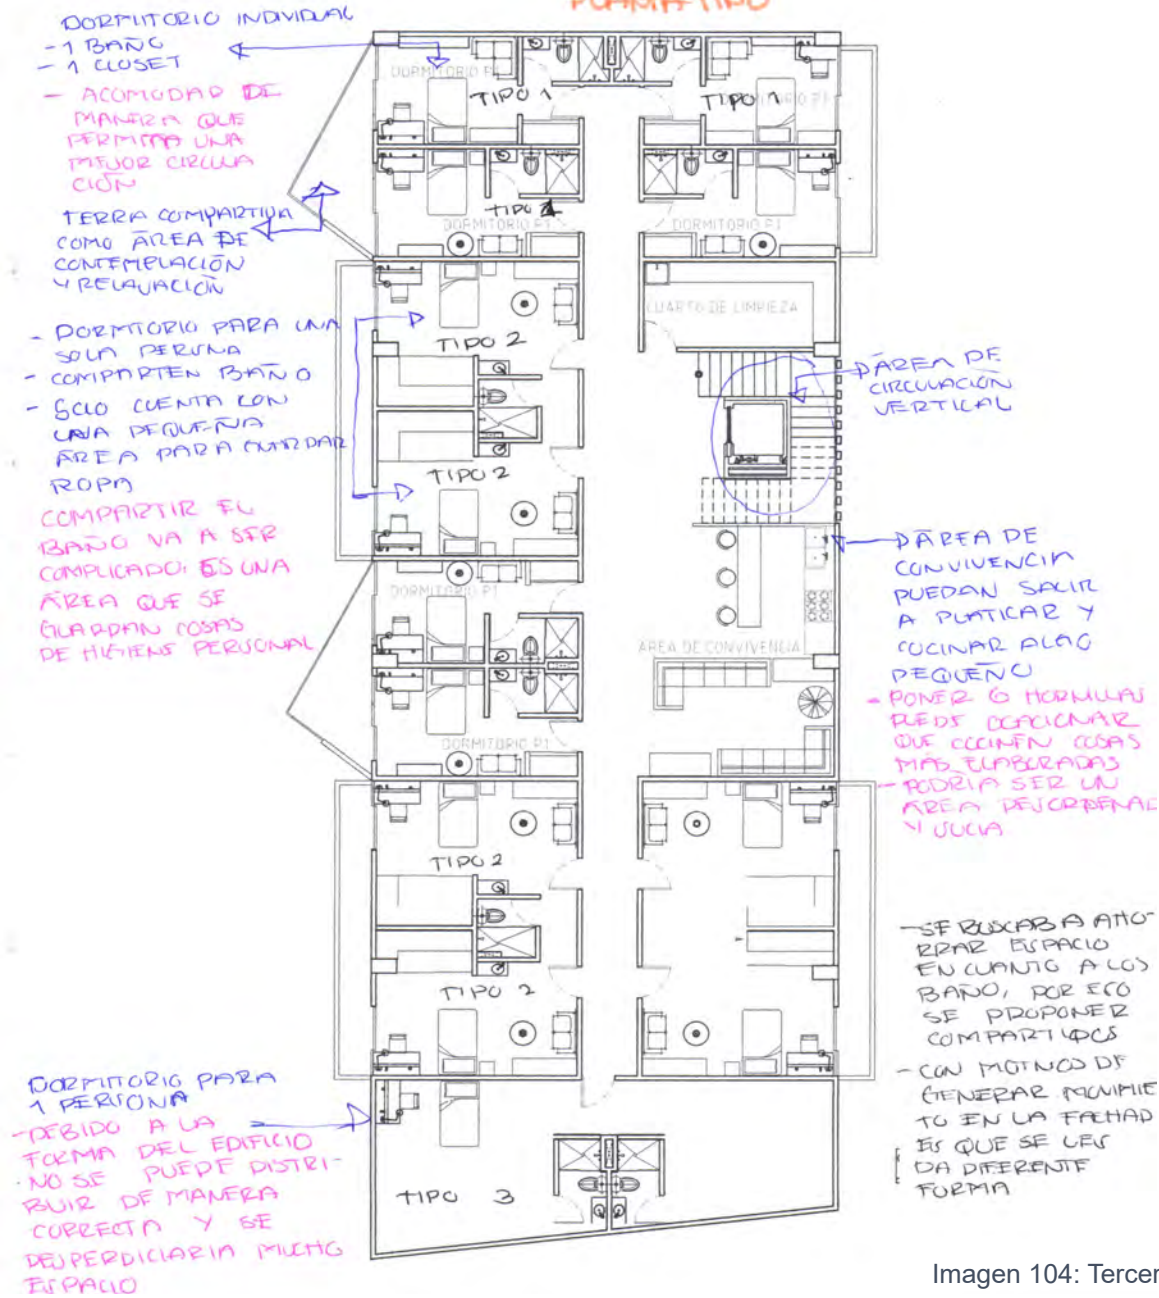 PLANTA TIPO
DORMITORIO INDIVIDUAL
- 1 BAÑO
- 1 CLOSET
- ACOMODAR DE
MANERA QUE
PERMITA UNA
MEJOR CIRCULA
CIÓN
TERRA COMPARTIDA
COMO ÁREA DE
CONTEMPLACIÓN
Y RELAJACIÓN
- DORMITORIO PARA UNA
SOLA PERSONA
- COMPARTEN BAÑO
- SOLO CUENTA CON
UNA PEQUEÑA
ÁREA PARA GUARDAR
ROPA
COMPARTIR EL
BAÑO VA A SER
COMPLICADO, ES UNA
ÁREA QUE SE
GUARDAN COSAS
DE HIGIENE PERSONAL
DORMITORIO PARA
1 PERSONA
- DEBIDO A LA
FORMA DEL EDIFICIO
NO SE PUEDE DISTRI-
BUIR DE MANERA
CORRECTA Y SE
DESPERDICIARIA MUCHO
ESPACIO
DORMITORIO P1
TIPO 1
DORMITORIO P1
TIPO 1
TIPO 1
DORMITORIO P1
DORMITORIO P1
CUARTO DE LIMPIEZA
TIPO 2
TIPO 2
DORMITORIO P1
AREA DE CONVIVENCIA
DORMITORIO P1
TIPO 2
TIPO 2
TIPO 3
ÁREA DE
CIRCULACIÓN
VERTICAL
ÁREA DE
CONVIVENCIA
PUEDAN SALIR
A PLATICAR Y
COCINAR ALGO
PEQUEÑO
- PONER 6 HORNILLAS
PUEDE OCACIONAR
QUE COCINEN COSAS
MÁS ELABORADAS
- PODRÍA SER UN
ÁREA DESORDENAD
Y SUCIA
- SE BUSCABA AHO-
RRAR ESPACIO
EN CUANTO A LOS
BAÑO, POR ESO
SE PROPONER
COMPARTIDOS
- CON MOTIVOS DE
GENERAR MOVIMIE
TO EN LA FACHAD
ES QUE SE LES
DA DIFERENTE
FORMA
Imagen 104: Tercer